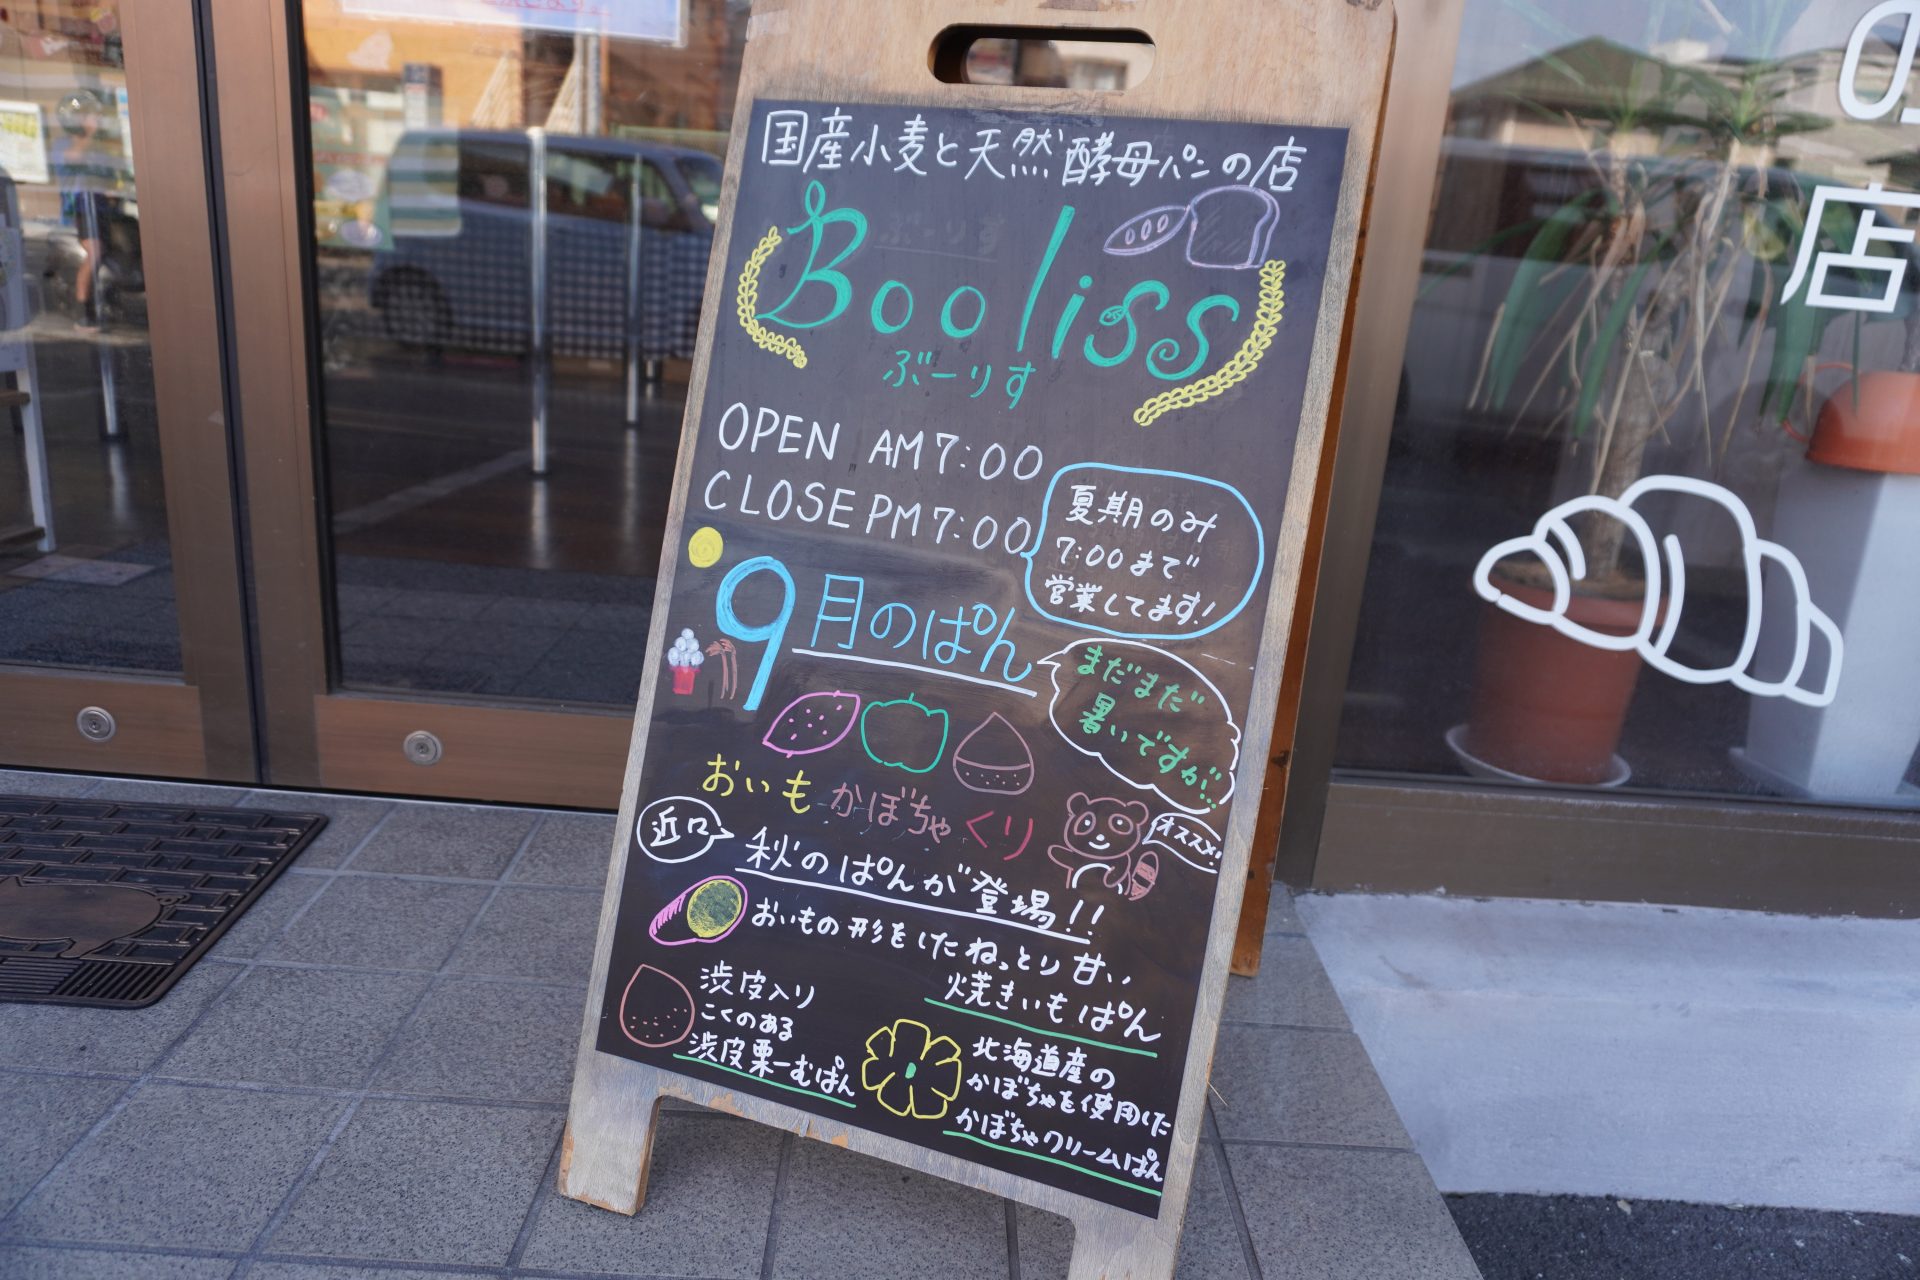 国産小麦と天然酵母パンの店
Booliss
ぶーりす
OPEN AM7:00
CLOSE PM7:00
夏期のみ
7:00まで
営業してます!
9月のぱん
まだまだ
暑いですが…
おいも かぼちゃ くり
オススメ!
近日
秋のぱんが登場!!
おいもの形をしたねっとり甘い
焼きいもぱん
渋皮入り
こくのある
渋皮栗ーむぱん
北海道産の
かぼちゃを使用した
かぼちゃクリームぱん
の
店